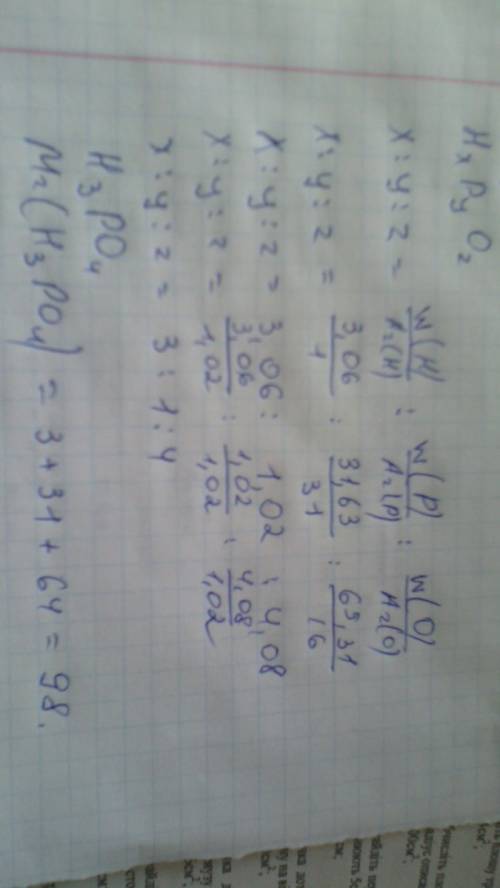 HxPyOz
x : y : z = w(H)/Ar(H) : w(P)/Ar(P) : w(O)/Ar(O)
x : y : z = 3,06/1 : 31,63/31 : 65,31/16
x : y : z = 3,06 : 1,02 : 4,08
x : y : z = 3,06/1,02 : 1,02/1,02 : 4,08/1,02
x : y : z = 3 : 1 : 4
H3PO4
Mr(H3PO4) = 3 + 31 + 64 = 98.